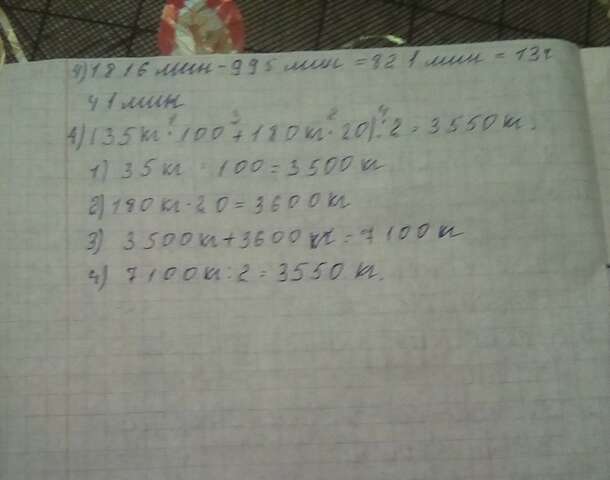 4) 1816 мин - 995 мин = 821 мин = 13 ч
41 мин
1) (35 кг · 100 + 180 кг · 20) : 2 = 3550 кг.
1) 35 кг · 100 = 3500 кг
2) 180 кг · 20 = 3600 кг
3) 3500 кг + 3600 кг = 7100 кг
4) 7100 кг : 2 = 3550 кг.